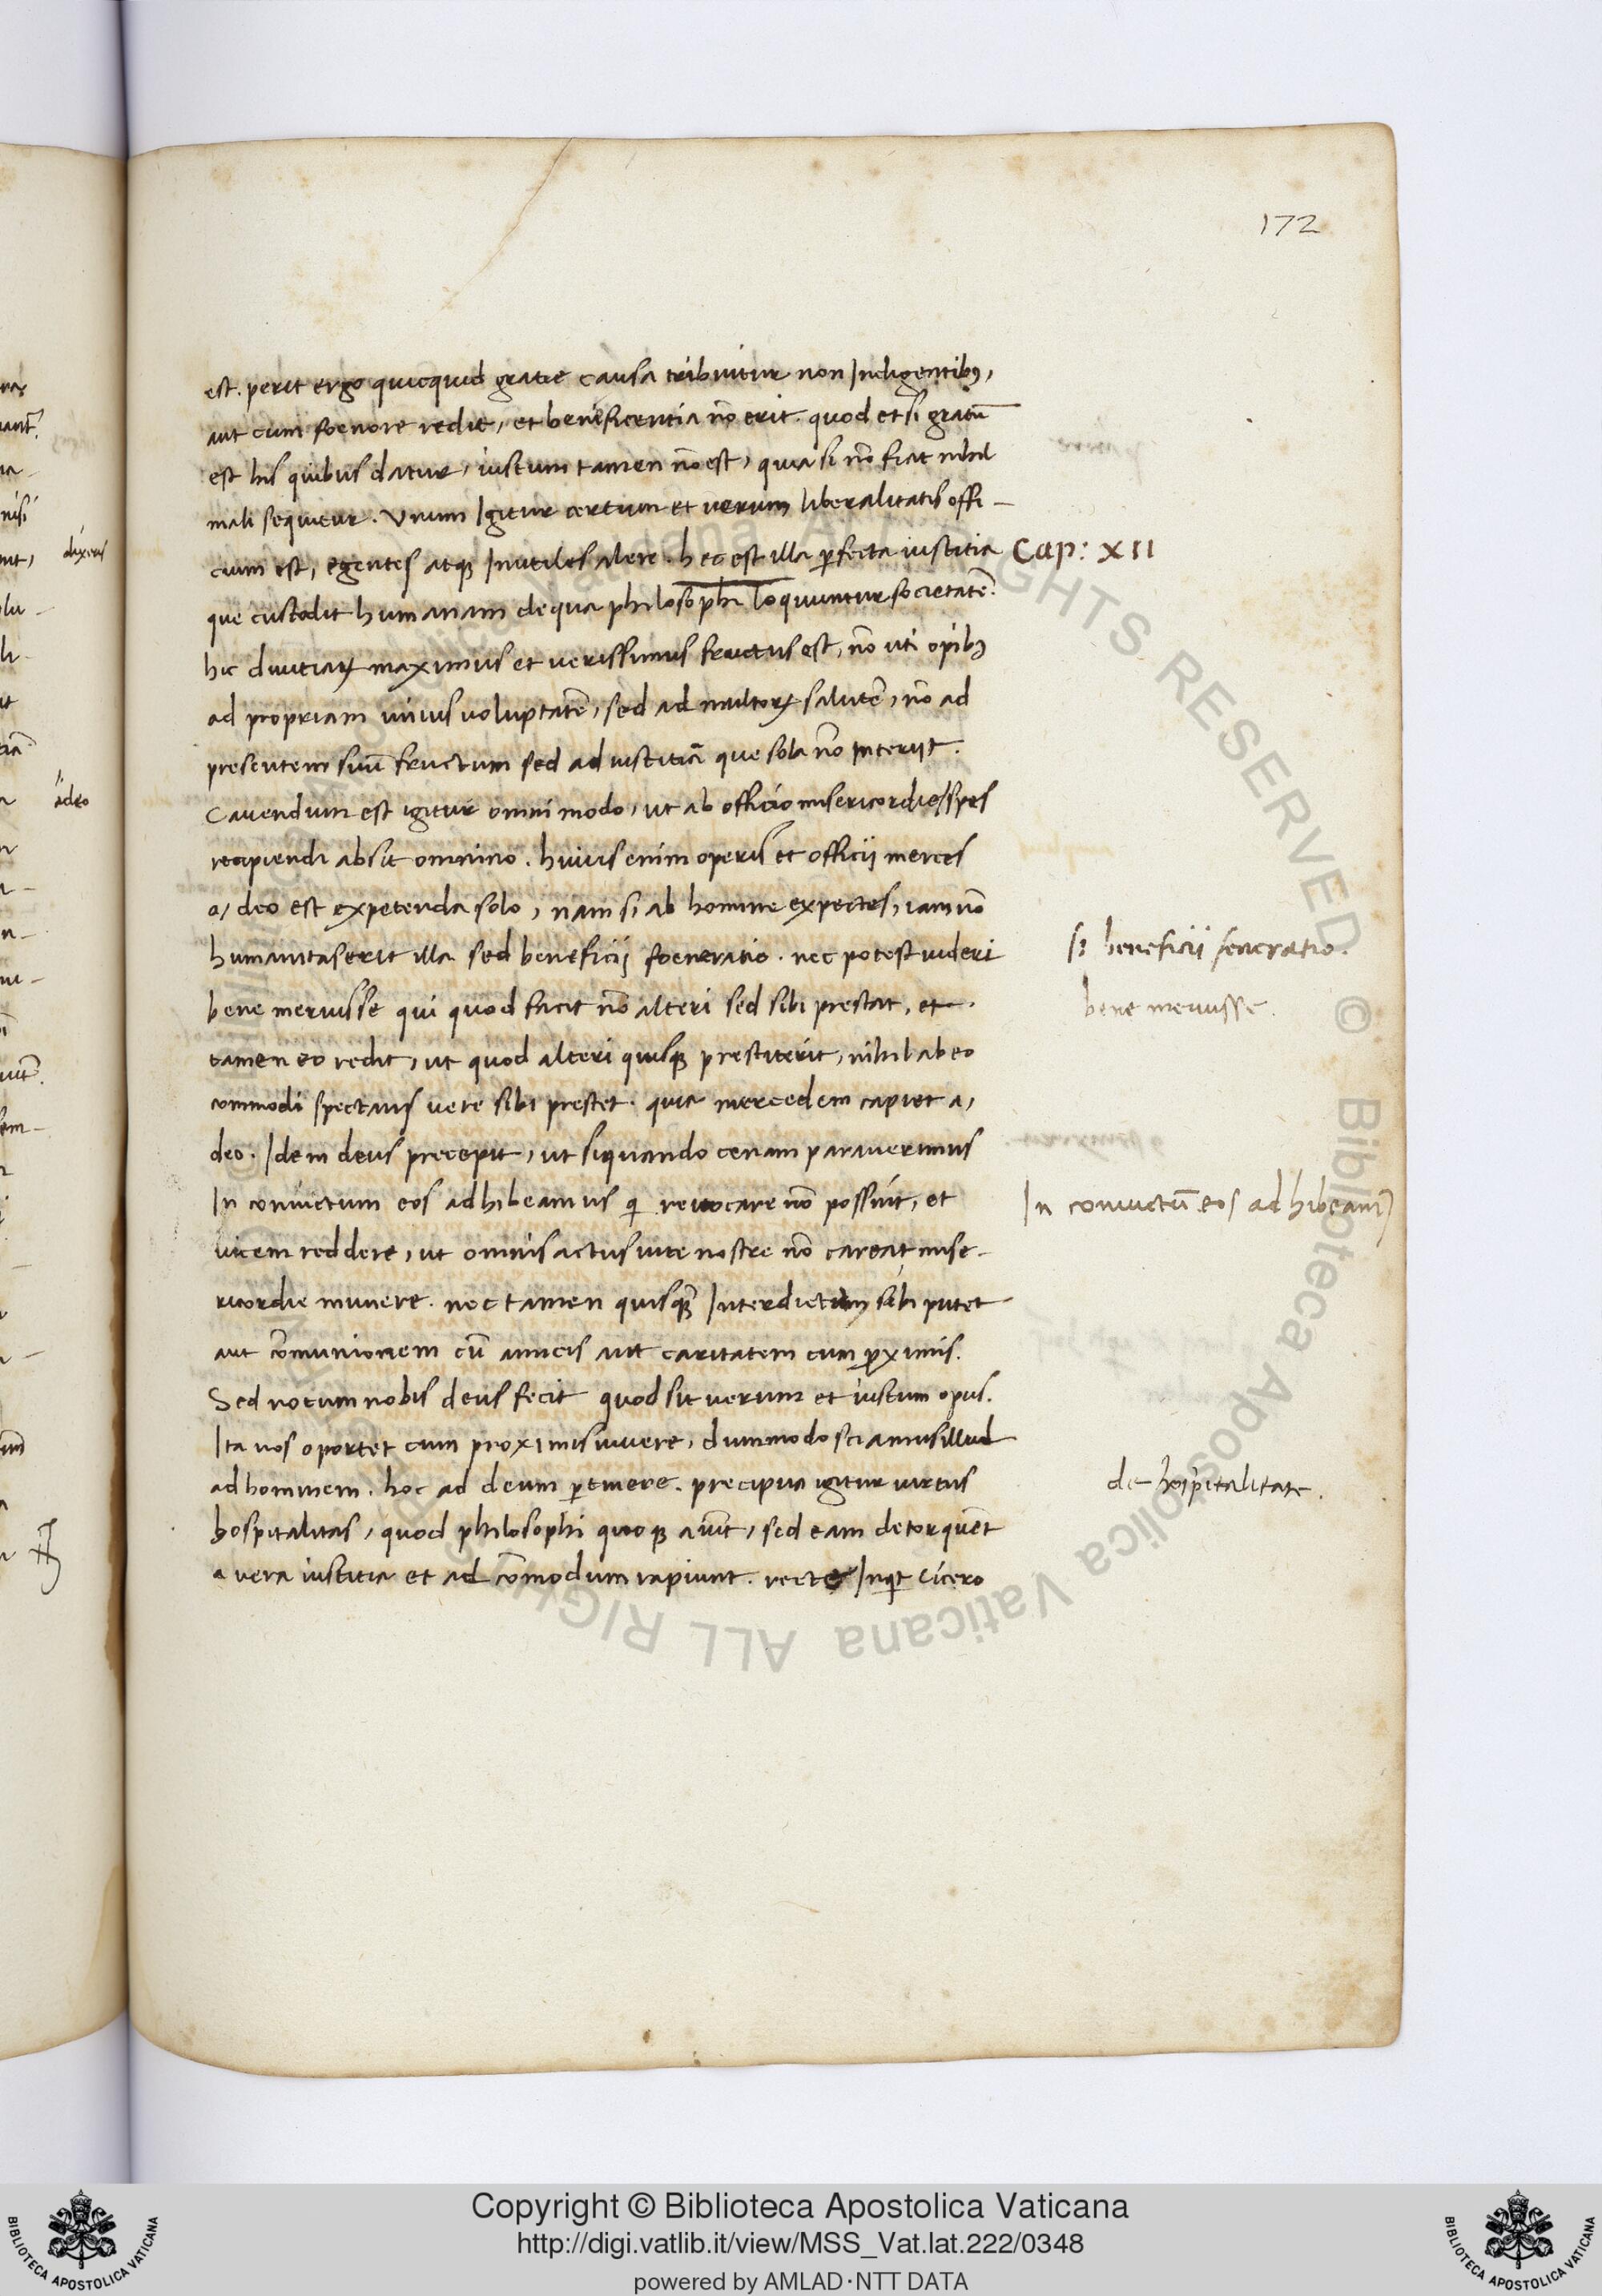 172
est. perit ergo quicquid gratie causa tribuitur non Indigentibꝫ,
aut cum foenore redit, et beneficentia nō erit. quod et si gratū
est his quibus datur, iustum tamen nō est, quia si nō fiat nihil
mali sequitur. Unum Igitur certum et verum liberalitatis offi-
cium est, egentes atqꝫ Inutiles alere. hec est illa ꝑfecta iustitia
Cap: XII
que custodit humanam de qua philosophi loquuntur societatē.
hic diuitiaꝝ maximus et uerissimus fructus est, nō uti opibꝫ
ad propriam unius uoluptatē, sed ad multoꝝ salutē, nō ad
presentem suū fructum sed ad iustitiā que sola nō interijt.
Cauendum est igitur omni modo, ut ab officio misericordie spes
recipiendi absit omnino. huius enim operis et officij merces
a, deo est expetenda solo, nam si ab homine expectes, iam nō
humanitas erit illa sed beneficij foeneratio. nec potest uideri
si beneficii feneratio.
bene meruisse qui quod facit nō alteri sed sibi prestat, et
bene meruisse.
tamen eo redit, ut quod alteri quisqꝫ prestiterit, nihil ab eo
commodi spectans uere sibi prestet. quia mercedem capiet a,
deo. Idem deus precepit, ut siquando cenam parauerimus
In conuictum eos adhibeamus qi reuocare nō possint, et
In conuictū eos adhibeamꝰ
uicem reddere, ut omnis actus uite nostre nō careat mise-
ricordie munere. nec tamen quisqꝫ Interdictum sibi putet
aut cōmunionem cū amicis aut caritatem cum ꝓximis.
Sed notum nobis deus fecit quod sit uerum et iustum opus.
Ita nos oportet cum proximis uiuere, dummodo sciamus illud
ad hominem. hoc ad deum ꝑtinere. precipua igitur uirtus
de hospitalitate.
hospitalitas, quod philosophi quoqꝫ aiūt, sed eam detorquēt
a uera iustitia et ad cōmodum rapiunt. recte Inqit Cicero
dixeris
adeo
© Biblioteca Apostolica Vaticana ALL RIGHTS RESERVED
Copyright © Biblioteca Apostolica Vaticana
http://digi.vatlib.it/view/MSS_Vat.lat.222/0348
powered by AMLAD·NTT DATA
BIBLIOTECA APOSTOLICA VATICANA
BIBLIOTECA APOSTOLICA VATICANA